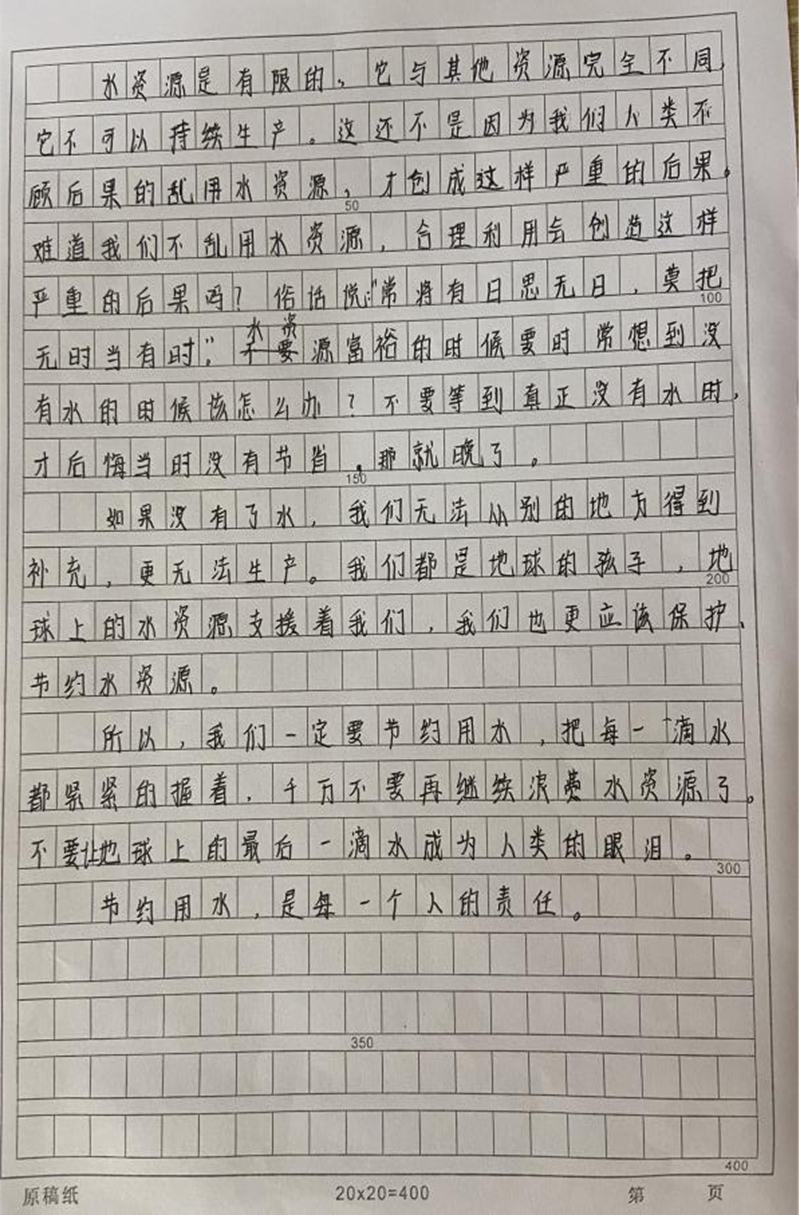 水资源是有限的，它与其他资源完全不同，
它不可以持续生产。这还不是因为我们人类不
顾后果的乱用水资源，才创成这样严重的后果。
50
难道我们不乱用水资源，合理利用会创造这样
严重的后果吗？俗话说：“常将有日思无日，莫把
100
无时当有时。”水资源富裕的时候要时常想到没
有水的时候该怎么办？不要等到真正没有水时，
才后悔当时没有节省，那就晚了。
150
如果没有了水，我们无法从别的地方得到
补充，更无法生产。我们都是地球的孩子，地
200
球上的水资源支援着我们，我们也更应该保护、
节约水资源。
所以，我们一定要节约用水，把每一个滴水
都紧紧的握着，千万不要再继续浪费水资源了。
不要让地球上的最后一滴水成为人类的眼泪。
300
节约用水，是每一个人的责任。
350
400
原稿纸 20x20=400 第 页